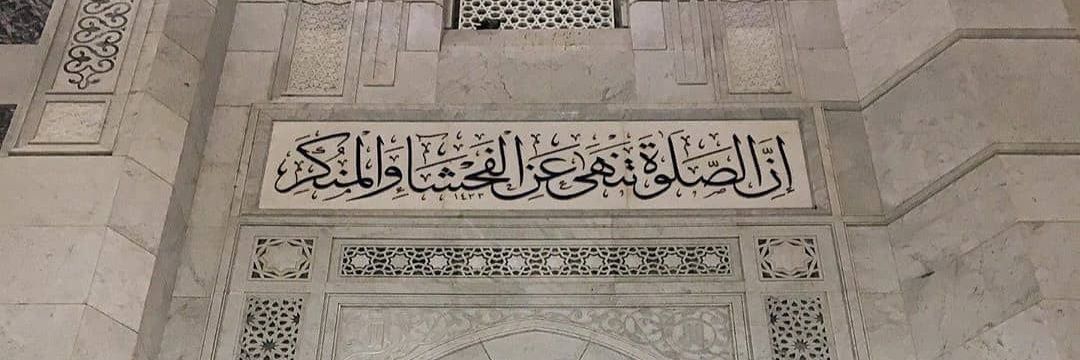 إِنَّ الصَّلَوةَ تَنْهَىٰ عَنِ الْفَحْشَاءِ وَالْمُنْكَرِ
١٤٢٣